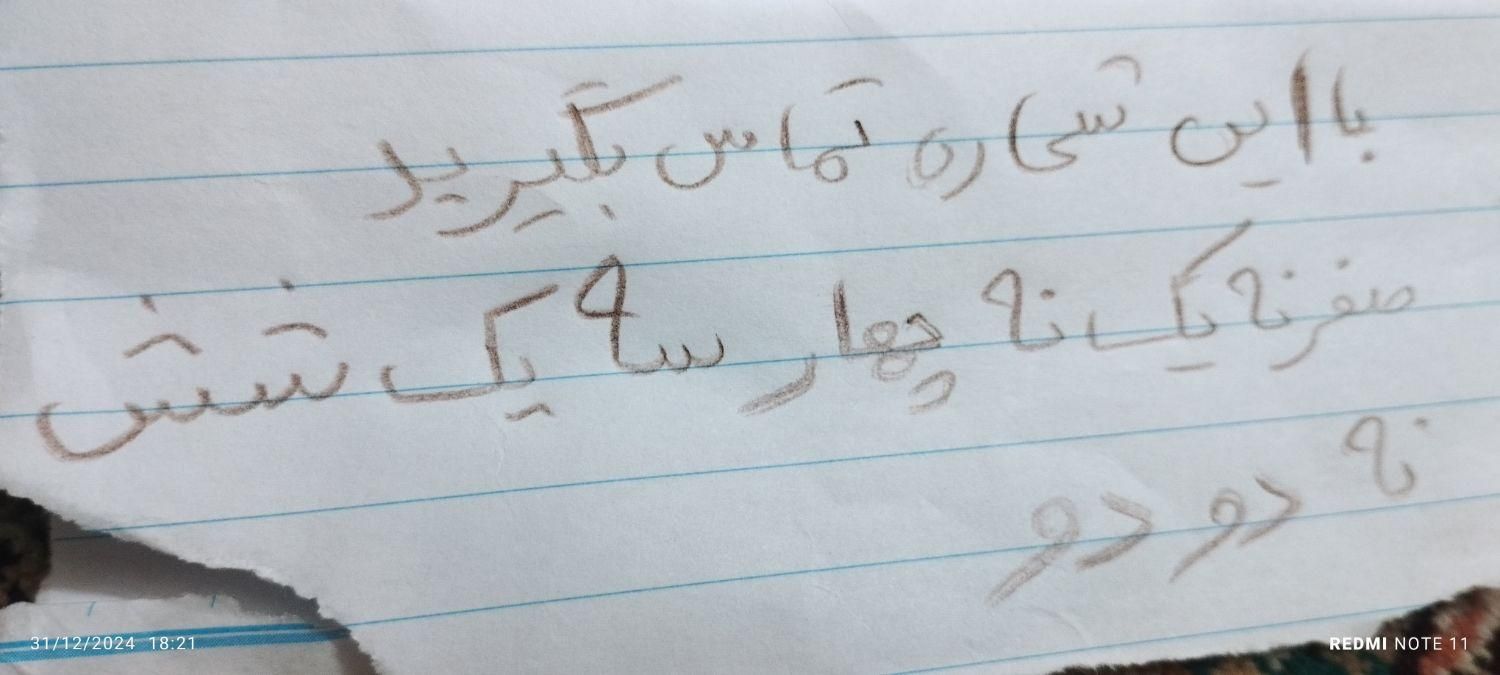 با این شماره تماس بگیرید
صفر نه یک نه چهار سه یک شش
نه دو دو
31/12/2024 18:21
REDMI NOTE 11